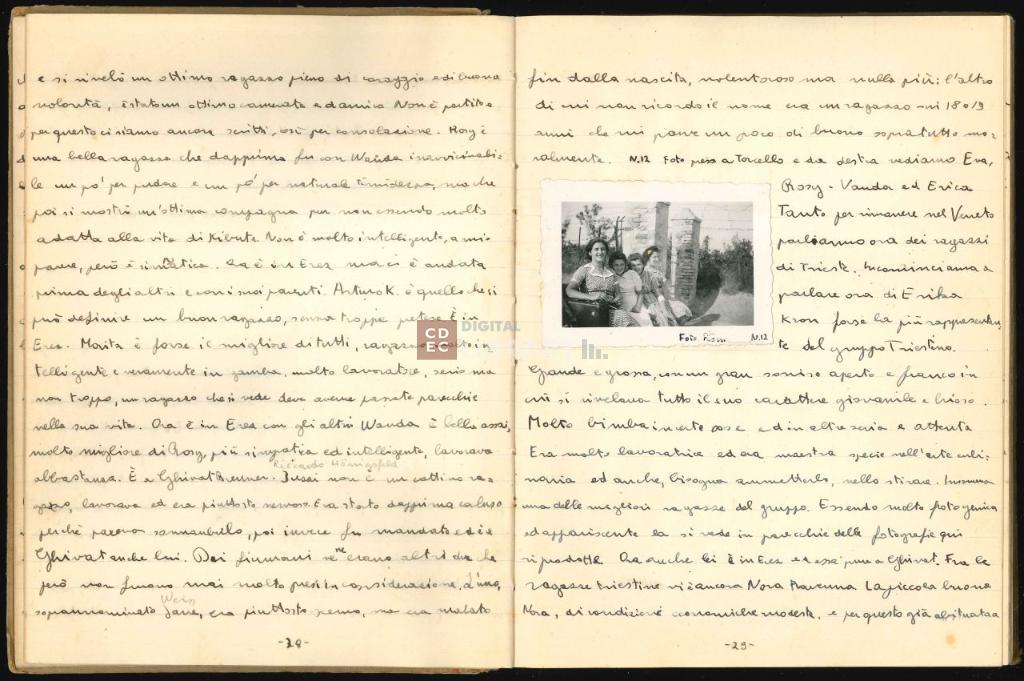 e si rivelò un ottimo ragazzo pieno di coraggio e di buona
volontà, è stato un ottimo camerata ed amico. Non è partito e
per questo ci siamo ancora scritti, così per consolazione. Rosy è
una bella ragazza che dapprima fu con Wanda inavvicinabi-
le un po' per pudore e un po' per naturale timidezza, ma che
poi si mostrò un'ottima compagna pur non essendo molto
adatta alla vita di Kibutz. Non è molto intelligente, a mio
parere, però è simpatica. Ora è in Erez ma ci è andata
prima degli altri e con i suoi parenti. Arturo K. è quello che si
può definire un buon ragazzo, senza troppe pretese. È in
Erez. Moritz è forse il migliore di tutti, ragazzo molto in
telligente e veramente in gamba, molto lavoratore, serio ma
non troppo, un ragazzo che si vede deve averne passate parecchie
nella sua vita. Ora è in Erez con gli altri. Wanda è bella assai,
molto migliore di Rosy, più simpatica ed intelligente, lavorava
Riccardo Hönigsfeld
abbastanza. È a Ghivat Brenner. Jussi non è un cattivo ra-
gazzo, lavorava ed era piuttosto nervoso. Era stato dapprima
perchè pareva sonnambulo, poi invece fu mandato ed è a
Ghivat anche lui. Dei fiumani ve ne erano altri due che
però non furono mai molto presi in considerazione, l'uno,
Weiss
soprannominato era piuttosto scemo, ma era malato
-28-
fin dalla nascita, volenteroso ma nulla più; l'altro
di cui non ricordo il nome era un ragazzo sui 18 o 19
anni che mi pare un poco di buono sopratutto mo-
ralmente. N.12 Foto presa a Torcello e da destra vediamo Eva,
Rosy - Vanda ed Erica
Tanto per rimanere nel Veneto
parliamo ora dei ragazzi
di Trieste. Incominciamo a
parlare ora di Erika
Kron forse la più rappresentan
te del gruppo Triestino.
Foto N.12
Grande e grossa, con un gran sorriso aperto e franco in
cui si rivelava tutto il suo carattere giovanile e brioso.
Molto bimba in certe cose ed in altre seria e attenta
Era molto lavoratrice ed era maestra specie nell'arte culi-
naria ed anche, bisogna ammetterlo, nello stirare. Insomma
una delle migliori ragazze del gruppo. Essendo molto fotogenica
ed appariscente la si vede in parecchie delle fotografie qui
riprodotte. Ora anche lei è in Erez ed essa pure a Ghivat. Fra le
ragazze triestine vi è ancora Nora Ravenna. La piccola buona
Nora, di condizioni economiche modeste, e per questo già abituata a
-29-
CDEC DIGITAL LIBRARY